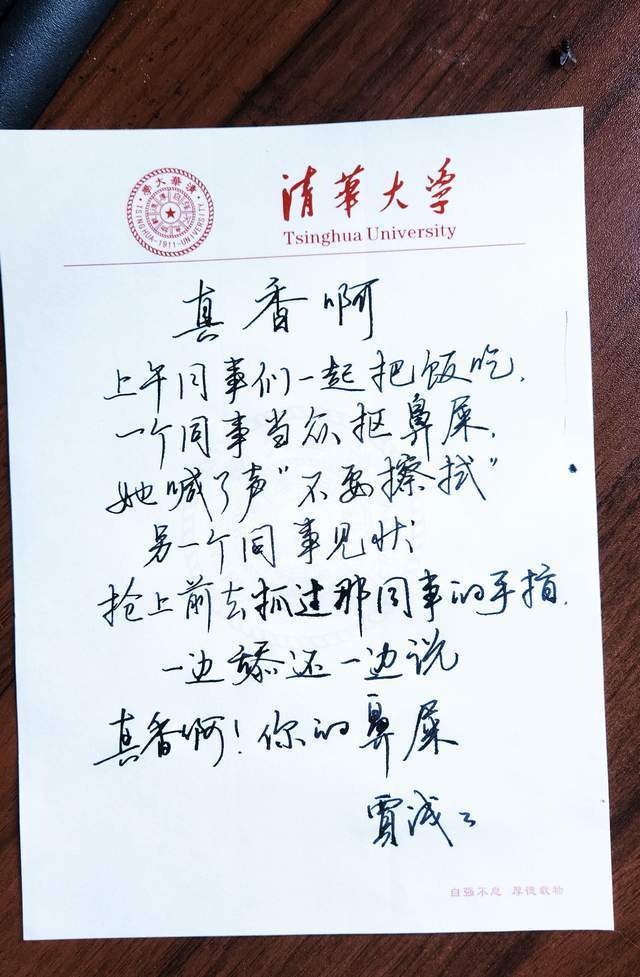 清華大學
TSINGHUA-1911-UNIVERSITY
清華大学
Tsinghua University
真香啊
上午同事们一起把饭吃,
一个同事当众抠鼻屎,
她喊了声"不要擦拭"
另一个同事见状
抢上前去抓过那同事的手指,
一边舔还一边说
真香啊!你的鼻屎
贾浅浅
自强不息 厚德载物